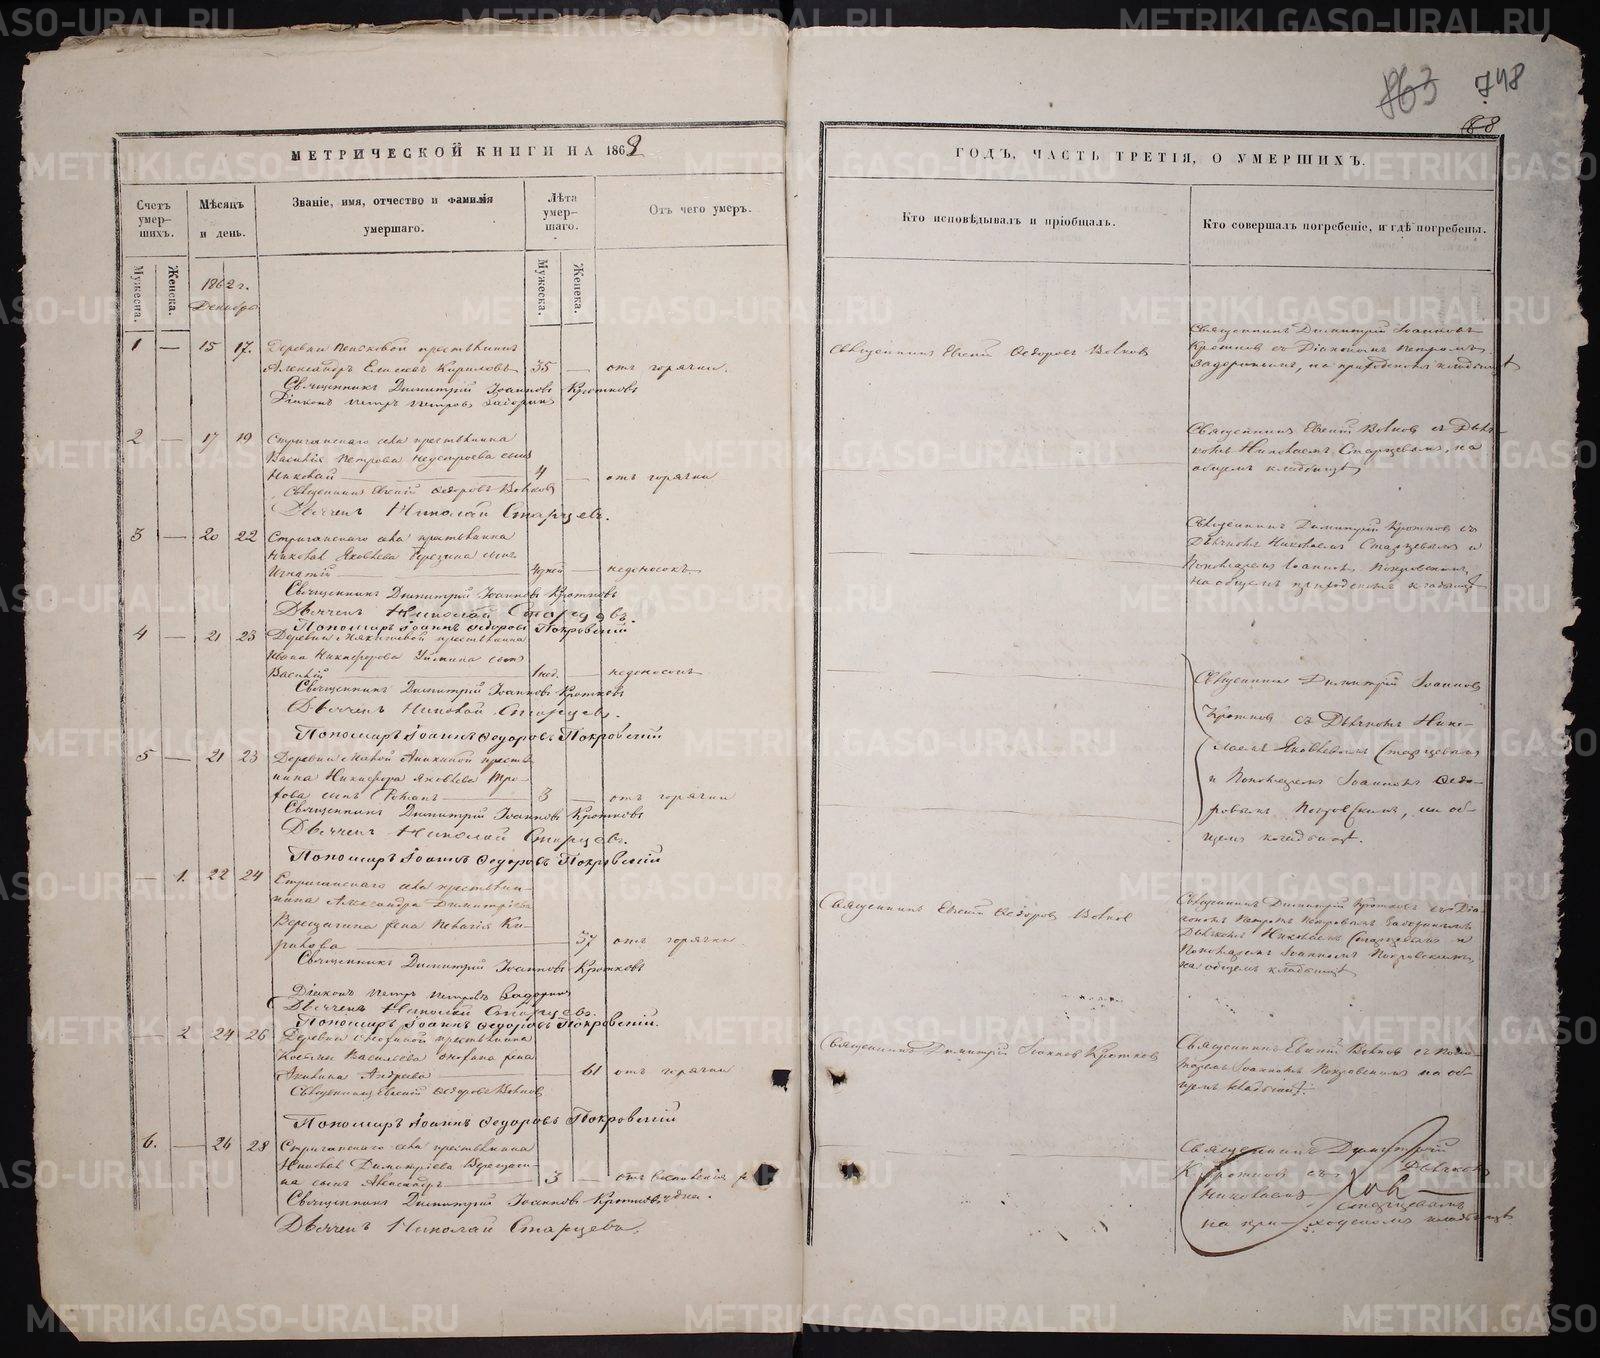 863 748
88
МЕТРИЧЕСКОЙ КНИГИ НА 1862
ГОДЪ, ЧАСТЬ ТРЕТІЯ, О УМЕРШИХЪ.
Счетъ умер-
шихъ.
Мѣсяцъ
и день.
Званіе, имя, отчество и фамилія
умершаго.
Лѣта
умер-
шаго.
Отъ чего умеръ.
Кто исповѣдывалъ и пріобщалъ.
Кто совершалъ погребеніе, и гдѣ погребены.
Мужеска.
Женска.
Мужеска.
Женска.
1862 г.
Декабрь
1 — 15 17. Деревни крестьянинъ
Александръ Елисеевъ Кириловъ 35 — отъ горячки.
Священникъ Димитрій Іоанновъ Кротковъ
Діаконъ Петръ Петровъ Задоринъ
Священникъ Евгеній Ѳедоровъ Волковъ
Священникъ Димитрій Іоанновъ
Кротковъ съ Діакономъ Петромъ
Задоринымъ, на приходскомъ кладбищѣ
2 — 17 19 Стриганскаго села крестьянина
Василія Петрова сынъ
Николай 4 — отъ горячки
Священникъ Евгеній Ѳедоровъ Волковъ
Дьячекъ Николай Старцевъ.
Священникъ Евгеній Волковъ съ Дьяч-
комъ Николаемъ Старцевымъ, на
общемъ кладбищѣ
3 — 20 22 Стриганскаго села крестьянина
Николая Яковлева сынъ
Игнатій — недоносокъ
Священникъ Димитрій Іоанновъ Кротковъ
Дьячекъ Николай Старцевъ.
Пономарь Іоаннъ Ѳедоровъ Покровскій
Священникъ Димитрій Кротковъ съ
Дьячкомъ Николаемъ Старцевымъ и
Пономаремъ Іоанномъ Покровскимъ,
на общемъ приходскомъ кладбищѣ
4 — 21 23 Деревни крестьянина
Ивана Никифорова сынъ
Василій 1 нед. недоносокъ
Священникъ Димитрій Іоанновъ Кротковъ
Дьячекъ Николай Старцевъ.
Пономарь Іоаннъ Ѳедоровъ Покровскій
Священникъ Димитрій Іоанновъ
Кротковъ съ Дьячкомъ Нико-
лаемъ Яковлевымъ Старцевымъ
и Пономаремъ Іоанномъ Ѳедо-
ровымъ Покровскимъ, на об-
щемъ кладбищѣ.
5 — 21 23 Деревни крестья-
нина Никифора Яковлева
сынъ Романъ 3 — отъ горячки
Священникъ Димитрій Іоанновъ Кротковъ
Дьячекъ Николай Старцевъ.
Пономарь Іоаннъ Ѳедоровъ Покровскій
— 1. 22 24 Стриганскаго села крестьяни-
нина Александра Димитріева
Верещагина жена Пелагія Ки-
рилова 37 отъ горячки.
Священникъ Димитрій Іоанновъ Кротковъ
Діаконъ Петръ Петровъ Задоринъ
Дьячекъ Николай Старцевъ.
Пономарь Іоаннъ Ѳедоровъ Покровскій.
Священникъ Евгеній Ѳедоровъ Волковъ
Священникъ Димитрій Кротковъ съ Діа-
кономъ Петромъ Петровымъ Задоринымъ
Дьячкомъ Николаемъ Старцевымъ и
Пономаремъ Іоанномъ Покровскимъ,
на общемъ кладбищѣ
— 2 24 26 Деревни крестьянина
Васильева жена
Акилина Андреева 61 отъ горячки
Священникъ Евгеній Ѳедоровъ Волковъ
Пономарь Іоаннъ Ѳедоровъ Покровскій
Священникъ Димитрій Іоанновъ Кротковъ
Священникъ Евгеній Волковъ съ Поно-
маремъ Іоанномъ Покровскимъ на об-
щемъ кладбищѣ.
6. — 24 28 Стриганскаго села крестьянина
Николая Димитріева Верещаги-
на сынъ Александръ 3 —
Священникъ Димитрій Іоанновъ Кротковъ
Дьячекъ Николай Старцевъ.
Священникъ Димитрій
Кротковъ съ Дьячкомъ
Николаемъ
Старцевымъ
на при-ходскомъ кладбищѣ
METRIKI.GASO-URAL.RU